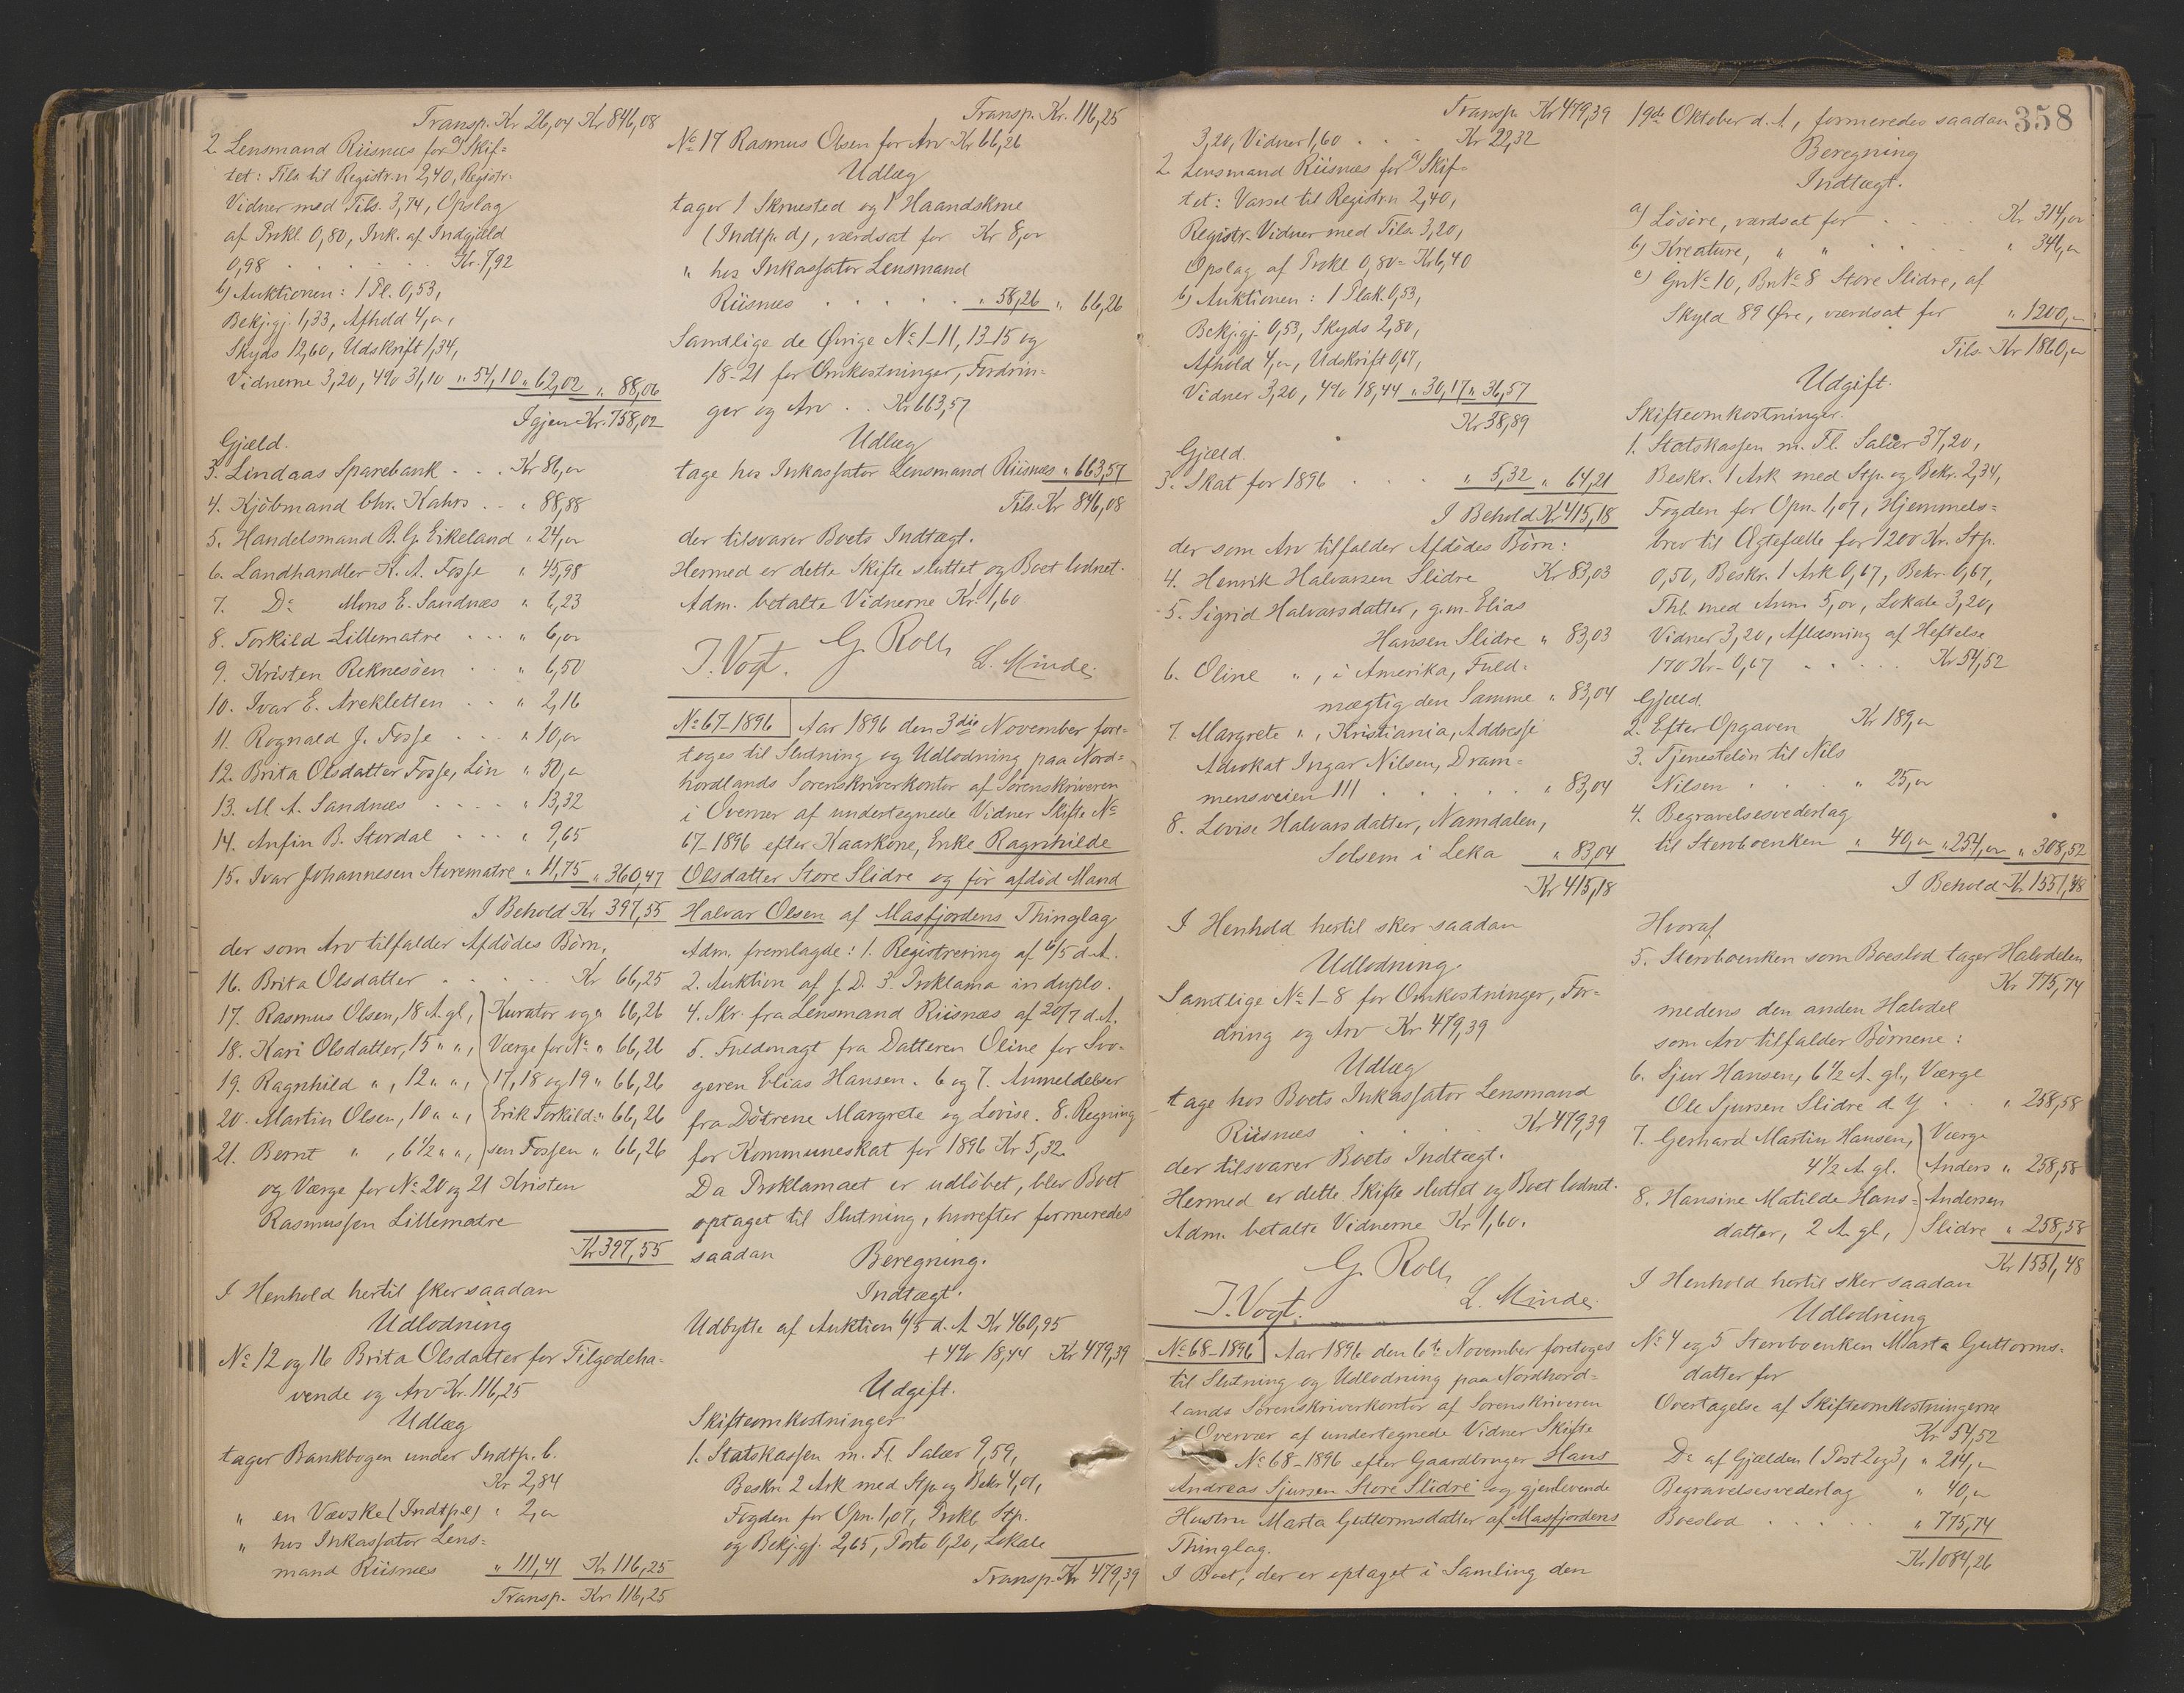 Transp. Kr 26,04 Kr 846,08
2. Lensmand Riisnæs for a) Skif-
tet: Tils. til Registr.n 2,40, Registr.
Vidner med Tils. 3,74, Opslag
af Prokl. 0,80, Ink. af Indgjæld
0,98 . . . . . Kr. 7,92
b) Auktionen: 1 Pl. 0,53,
Bekj.gj. 1,33, Afhold 4,00,
Skyds 12,60, Udskrift 1,34,
Vidnerne 3,20, 4% 31,10 " 54,10 " 62,02 " 88,06
Igjen Kr. 758,02
Gjæld.
3. Lindaas Sparebank . . . Kr 86,00
4. Kjöbmand Chr. Kahrs . . " 88,88
5. Handelsmand R. G. Eikeland " 24,00
6. Landhandler K. A. Fosse " 45,98
7. Do Mons E. Sandnæs " 6,23
8. Torkild Lillematre . . . " 6,00
9. Kristen Reknesöen . . " 6,50
10. Ivar E. Arekletten . . " 2,16
11. Rognald J. Fosse . . . " 10,00
12. Brita Olsdatter Fosse, Lön " 50,00
13. M. A. Sandnæs . . . . " 13,32
14. Anfin B. Stordal . . . " 9,65
15. Ivar Johannesen Storematre " 11,75 " 360,47
I Behold Kr 397,55
der som Arv tilfalder Afdödes Börn,
16. Brita Olsdatter . . . . Kr 66,25
17. Rasmus Olsen, 18 A. gl., Kurator og " 66,26
18. Kari Olsdatter, 15 " ", Værge for No " 66,26
19. Ragnhild " , 12 " ", 17, 18 og 19 " 66,26
20. Martin Olsen, 10 " ", Erik Torkild- " 66,26
21. Bernt " , 6 1/2 " ", sen Fossen " 66,26
og Værge for No 20 og 21 Kristen
Rasmussen Lillematre
Kr 397,55
I Henhold hertil sker saadan
Udlodning
No 12 og 16 Brita Olsdatter for Tilgodeha-
vende og Arv Kr. 116,25
Udlæg
tager Bankbogen under Indtp. b.
Kr 2,84
" en Vævske (Indtp. e) " 2,00
" hos Inkassator Lens-
mand Riisnæs " 111,41 Kr 116,25
Transp. Kr 116,25
Transp. Kr. 116,25
No 17 Rasmus Olsen for Arv Kr 66,26
Udlæg
tager 1 Skruested og 1 Haandskrue
(Indtp. d), værdsat for Kr 8,00
" hos Inkassator Lensmand
Riisnæs . . . . . " 58,26 " 66,26
Samtlige de Övrige No 1-11, 13-15 og
18-21 for Omkostninger, Fordrin-
ger og Arv . . Kr 663,57
Udlæg
tage hos Inkassator Lensmand Riisnæs " 663,57
Tils. Kr 846,08
der tilsvarer Boets Indtægt.
Hermed er dette Skifte sluttet og Boet lodnet.
Adm. betalte Vidnerne Kr. 1,60
G. Roll
J. Vogt. L. Minde.
No 67-1896 Aar 1896 den 3die November fore-
toges til Slutning og Udlodning paa Nord-
hordlands Sorenskriverkontor af Sorenskriveren
i Overvær af undertegnede Vidner Skifte No
67-1896 efter Kaarkone, Enke Ragnhilde
Olsdatter Store Slidre og för afdöd Mand
Halvar Olsen af Masfjordens Thinglag
Adm. fremlagde: 1. Registrering af 6/5 d. A.
2. Auktion af s. D. 3. Proklama in duplo.
4. Skr. fra Lensmand Riisnæs af 20/7 d. A.
5. Fuldmagt fra Datteren Oline for Svo-
geren Elias Hansen. 6 og 7. Anmeldelser
fra Döttrene Margrete og Lovise. 8. Regning
for Kommuneskat for 1896 Kr 5,32.
Da Proklamaet er udlöbet, blev Boet
optaget til Slutning, hvorefter formeredes
saadan Beregning.
Indtægt.
Udbytte af Auktion 6/5 d. A. Kr 460,95
+ 4% 18,44 Kr 479,39
Udgift.
Skifteomkostninger
1. Statskassen m. Fl. Salær 9,59,
Beskr. 2 Ark med Stp. og Bekr. 4,01,
Fogden for Opn. 1,07, Prokl. Stp.
og Bekj.gj. 2,65, Porto 0,20, Lokale
Transp. Kr 479,39
Transp. Kr 479,39
3,20, Vidner 1,60 . . . Kr 22,32
2. Lensmand Riisnæs for a) Skif-
tet: Varsel til Registr.n 2,40,
Registr. Vidner med Tils. 3,20,
Opslag af Prokl. 0,80 = Kr 6,40
b) Auktionen: 1 Plak. 0,53,
Bekj.gj. 0,53, Skyds 2,80,
Afhold 4,00, Udskrift 0,67,
Vidner 3,20, 4% 18,44 " 30,17 " 36,57
Kr 58,89
Gjæld.
3. Skat for 1896 . . . . " 5,32 " 64,21
I Behold Kr 415,18
der som Arv tilfalder Afdödes Börn:
4. Henrik Halvarsen Slidre Kr 83,03
5. Sigrid Halvarsdatter, g. m. Elias
Hansen Slidre " 83,03
6. Oline " , i Amerika, Fuld-
mægtig den Samme " 83,04
7. Margrete " , Kristiania, Addresse
Advokat Ingar Nilsen, Dram-
mensveien 111 . . . . . " 83,04
8. Lovise Halvarsdatter, Namdalen,
Solsem i Leka " 83,04
Kr 415,18
I Henhold hertil sker saadan
Udlodning
Samtlige No 1-8 for Omkostninger, For-
dring og Arv Kr 479,39
Udlæg
tage hos Boets Inkassator Lensmand
Riisnæs . . . . Kr 479,39
der tilsvarer Boets Indtægt.
Hermed er dette Skifte sluttet og Boet lodnet.
Adm. betalte Vidnerne Kr 1,60.
G. Roll
J. Vogt. L. Minde.
No 68-1896 Aar 1896 den 6te November foretoges
til Slutning og Udlodning paa Nordhord-
lands Sorenskriverkontor af Sorenskriveren
i Overvær af undertegnede Vidner Skifte
No 68-1896 efter Gaardbruger Hans
Andreas Sjursen Store Slidre og gjenlevende
Hustru Marta Guttormsdatter af Masfjordens
Thinglag.
I Boet, der er optaget i Samling den
358
19de Oktober d. A., formeredes saadan
Beregning
Indtægt.
a) Lösöre, værdsat for . . . . Kr 314,00
b) Kreature, " " . . . . " 346,00
c) Gr.No 10, Br.No 8 Store Slidre, af
Skyld 89 Öre, værdsat for " 1200,00
Tils. Kr 1860,00
Udgift.
Skifteomkostninger.
1. Statskassen m. Fl. Salær 37,20,
Beskr. 1 Ark med Stp. og Bekr. 2,34,
Fogden for Opn. 1,07, Hjemmels-
brev til Ægtefælle for 1200 Kr. Stp.
0,50, Beskr. 1 Ark 0,67, Bekr. 0,67,
Thl. med Anm. 5,00, Lokale 3,20,
Vidner 3,20, Aflæsning af Heftelse
170 Kr - 0,67 . . . . . Kr 54,52
Gjæld.
2. Efter Opgaven Kr 189,00
3. Tjenestelön til Nils
Nilsen . . . " 25,00
4. Begravelsesvederlag
til Stervboenken " 40,00 " 254,00 " 308,52
I Behold Kr 1551,48
Hvoraf
5. Stervboenken som Boeslod tager Halvdelen
Kr 775,74
medens den anden Halvdel
som Arv tilfalder Börnene:
6. Sjur Hansen, 6 1/2 A. gl., Værge
Ole Sjursen Slidre d. y. . . " 258,58
7. Gerhard Martin Hansen, Værge
4 1/2 A. gl. Anders " 258,58
8. Hansine Matilde Hans- Andersen
datter, 2 A. gl., Slidre " 258,58
Kr 1551,48
I Henhold hertil sker saadan
Udlodning
No 4 og 5 Stervboenken Marta Guttorms-
datter for
Overtagelse af Skifteomkostningerne
Kr 54,52
Do af Gjælden (Post 2 og 3) " 214,00
Begravelsesvederlag " 40,00
Boeslod . . . . . " 775,74
Kr 1084,26